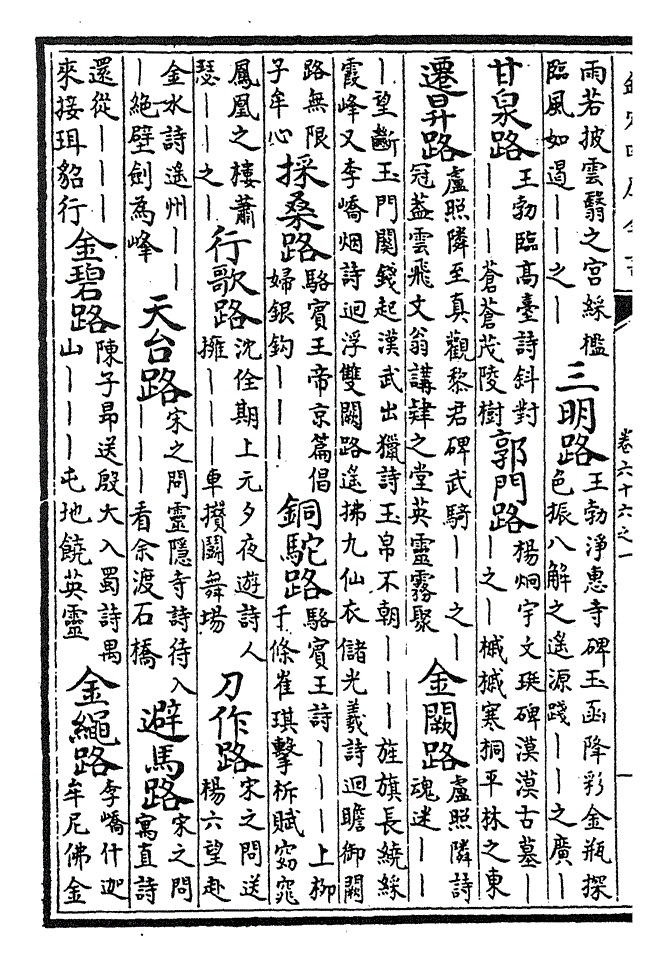 卷六十六之一
雨若披雲翳之宮綵檻
臨風如遏｜｜之｜
三明路
王勃淨惠寺碑玉函降彩金瓶探
色振八解之遙源踐｜｜之廣｜
甘泉路
王勃臨高臺詩斜對
｜｜｜蒼蒼茂陵樹
郭門路
楊炯宇文珽碑漠漠古墓｜
｜之｜槭槭寒桐平林之東
遷昇路
盧照隣至真觀黎君碑武騎｜｜之｜
冠蓋雲飛文翁講肄之堂英靈霧聚
金闕路
盧照隣詩
魂迷｜｜
｜望斷玉門關錢起漢武出獵詩玉帛不朝｜｜｜旌旗長繞綵
霞峰又李嶠烟詩迥浮雙闕路遙拂九仙衣儲光羲詩迥瞻御闕
路無限
子牟心
採桑路
駱賓王帝京篇倡
婦銀鈎｜｜｜
銅駝路
駱賓王詩｜｜｜上柳
千條崔琪擊柝賦窈窕
鳳凰之樓蕭
瑟｜｜之｜
行歌路
沈佺期上元夕夜遊詩人
擁｜｜｜車攢鬬舞場
刀作路
宋之問送
楊六望赴
金水詩遙州｜｜
｜絶壁劍為峰
天台路
宋之問靈隱寺詩待入
｜｜｜看余渡石橋
避馬路
宋之問
寓直詩
還從｜｜｜
來接珥貂行
金碧路
陳子昂送殷大入蜀詩禺
山｜｜｜屯地饒英靈
金繩路
李嶠什迦
牟尼佛金